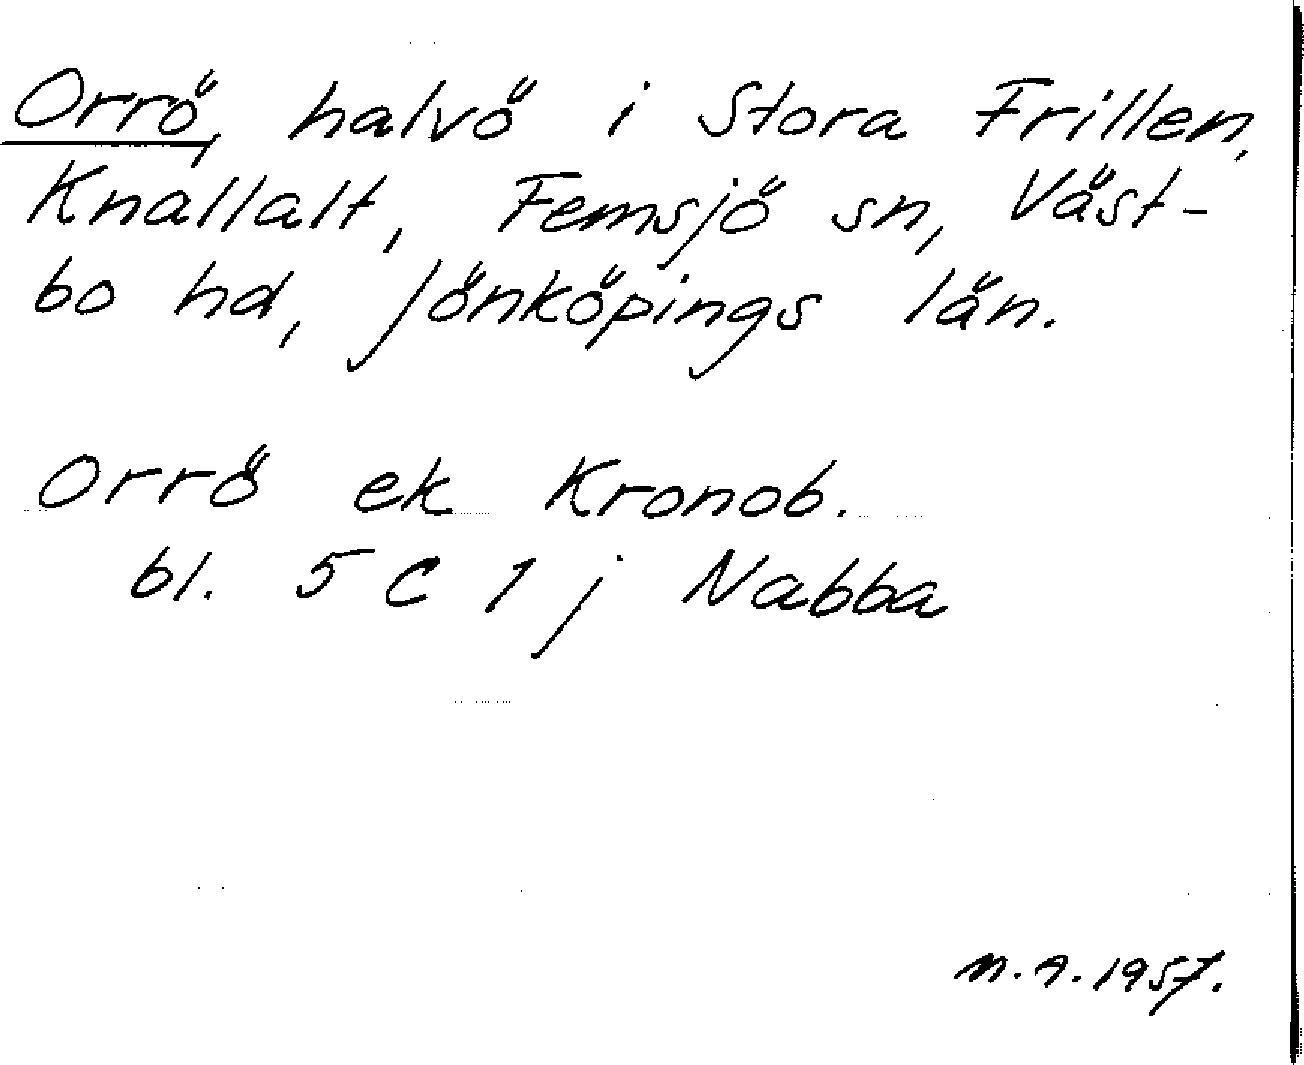 Orrö, halvö i Stora Frillen,
Knallalt, Femsjö sn, Väst-
bo hd, Jönköpings län.
Orrö ek Kronob.
bl. 5 C 1 j Nabba
M.A. 1957.